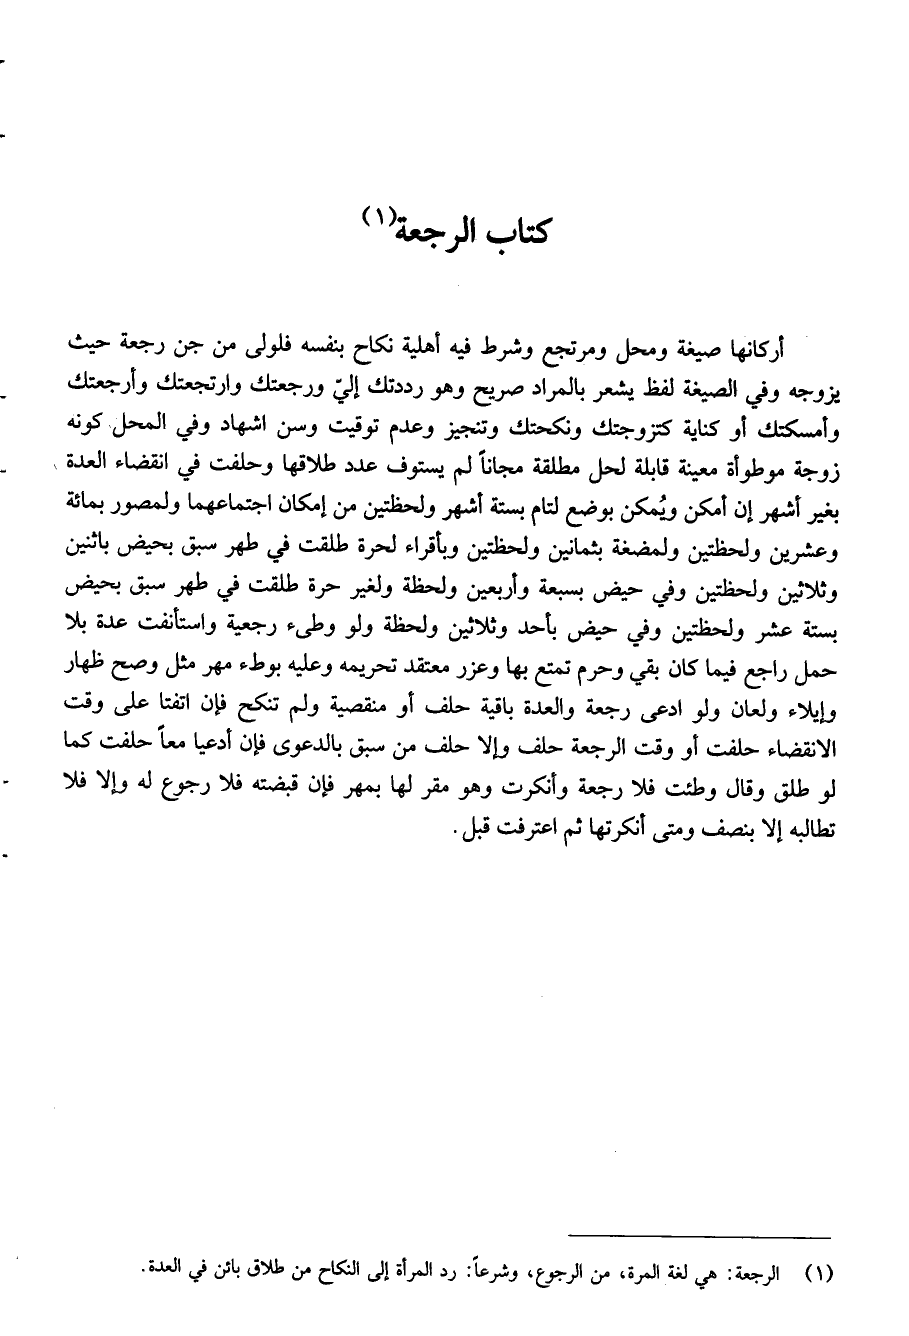 كتاب الرجعة(١)
أركانها صيغة ومحل ومرتجع وشرط فيه أهلية نكاح بنفسه فلولى من جن رجعة حيث
يزوجه وفي الصيغة لفظ يشعر بالمراد صريح وهو رددتك إليّ ورجعتك وارتجعتك وأرجعتك
وأمسكتك أو كناية كتزوجتك ونكحتك وتنجيز وعدم توقيت وسن اشهاد وفي المحل كونه
زوجة موطوأة معينة قابلة لحل مطلقة مجاناً لم يستوف عدد طلاقها وحلفت في انقضاء العدة
بغير أشهر إن أمكن ويُمكن بوضع لتام بستة أشهر ولحظتين من إمكان اجتماعهما ولمصور بمائة
وعشرين ولحظتين ولمضغة بثمانين ولحظتين وبأقراء لحرة طلقت في طهر سبق بحيض باثنين
وثلاثين ولحظتين وفي حيض بسبعة وأربعين ولحظة ولغير حرة طلقت في طهر سبق بحيض
بستة عشر ولحظتين وفي حيض بأحد وثلاثين ولحظة ولو وطىء رجعية واستأنفت عدة بلا
حمل راجع فيما كان بقي وحرم تمتع بها وعزر معتقد تحريمه وعليه بوطء مهر مثل وصح ظهار
وإيلاء ولعان ولو ادعى رجعة والعدة باقية حلف أو منقصية ولم تنكح فإن اتفتا على وقت
الانقضاء حلفت أو وقت الرجعة حلف وإلا حلف من سبق بالدعوى فإن أدعيا معاً حلفت كما
لو طلق وقال وطئت فلا رجعة وأنكرت وهو مقر لها بمهر فإن قبضته فلا رجوع له وإلا فلا
تطالبه إلا بنصف ومتى أنكرتها ثم اعترفت قبل.
(١) الرجعة: هي لغة المرة، من الرجوع، وشرعاً: رد المرأة إلى النكاح من طلاق بائن في العدة.